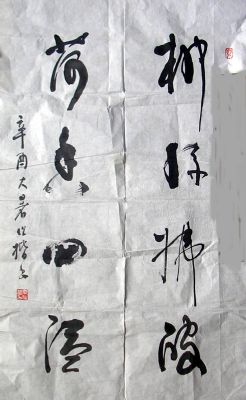 柳絲拂波
荷香四溢
辛酉大暑